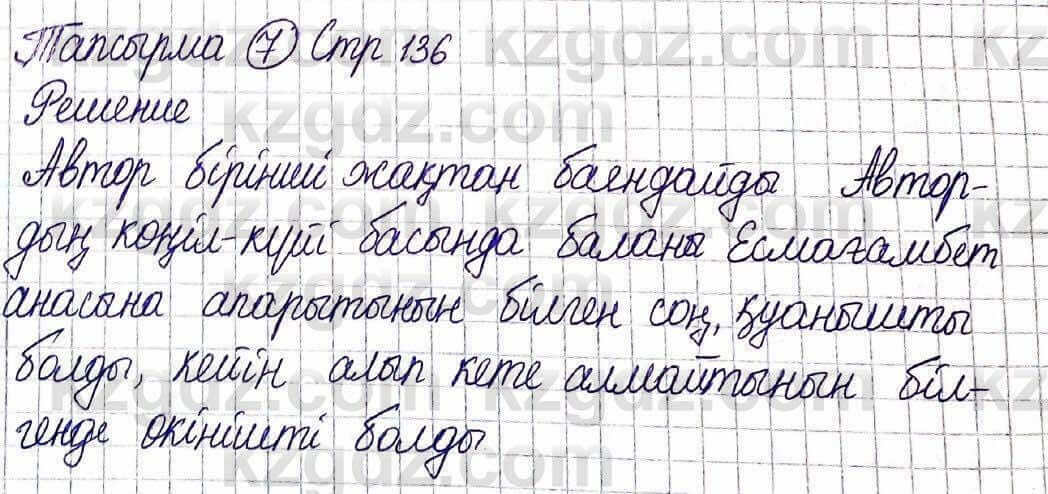 Тапсырма 7 Стр 136
Решение
Автор бірінші жақтан баяндайды Автор-
дың көңіл-күйі басында баланы Есмағамбет
анасына апарытынын білген соң, қуанышты
болды, кейін алып кете алмайтынын біл-
генде өкінішті болды